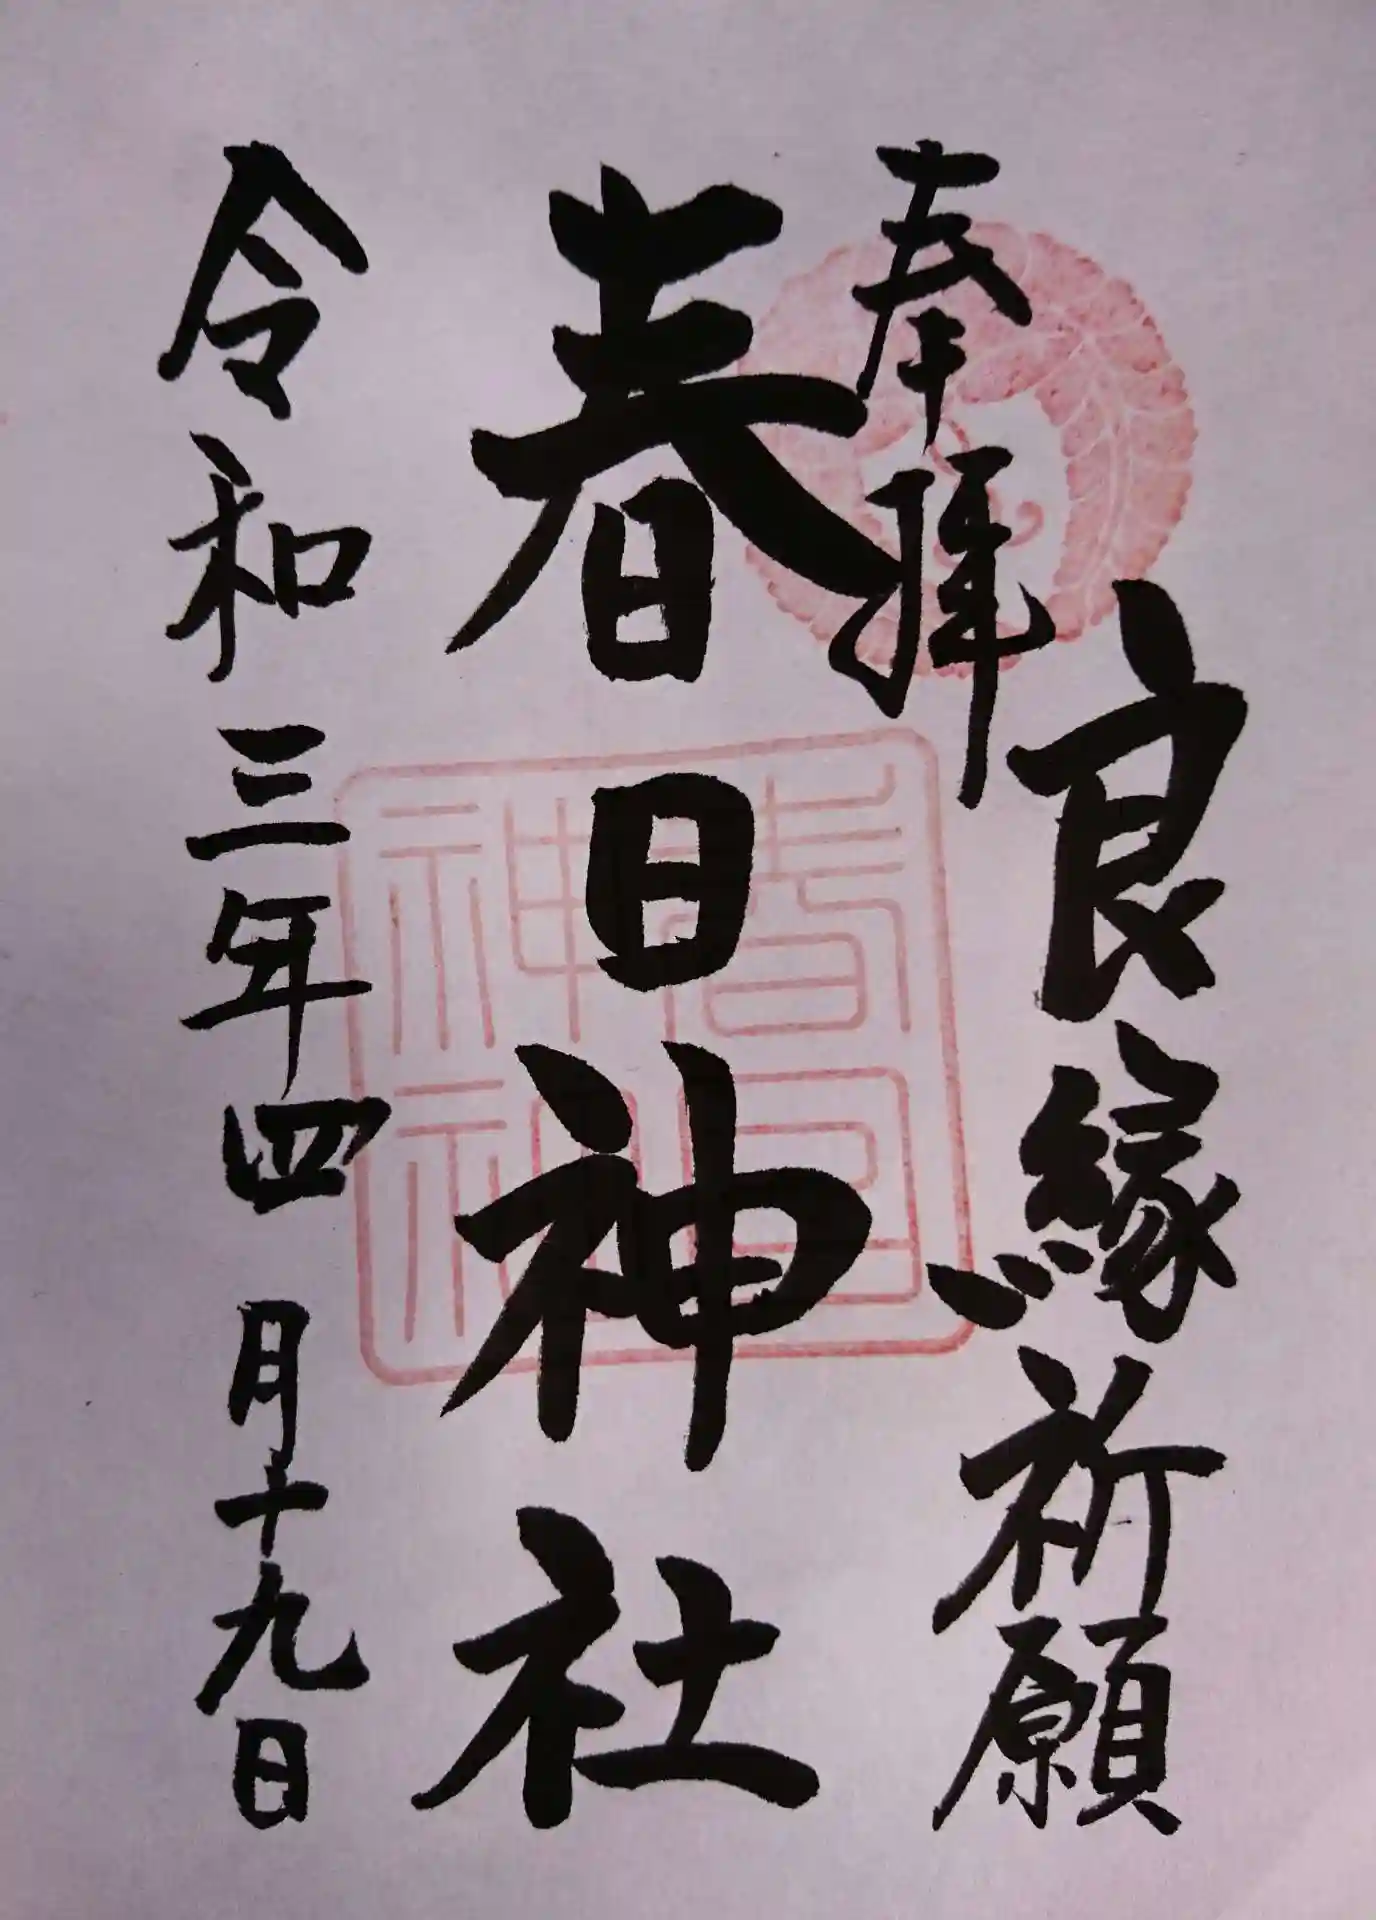 奉拝
良縁祈願
春日神社
春日神社
令和三年四月十九日